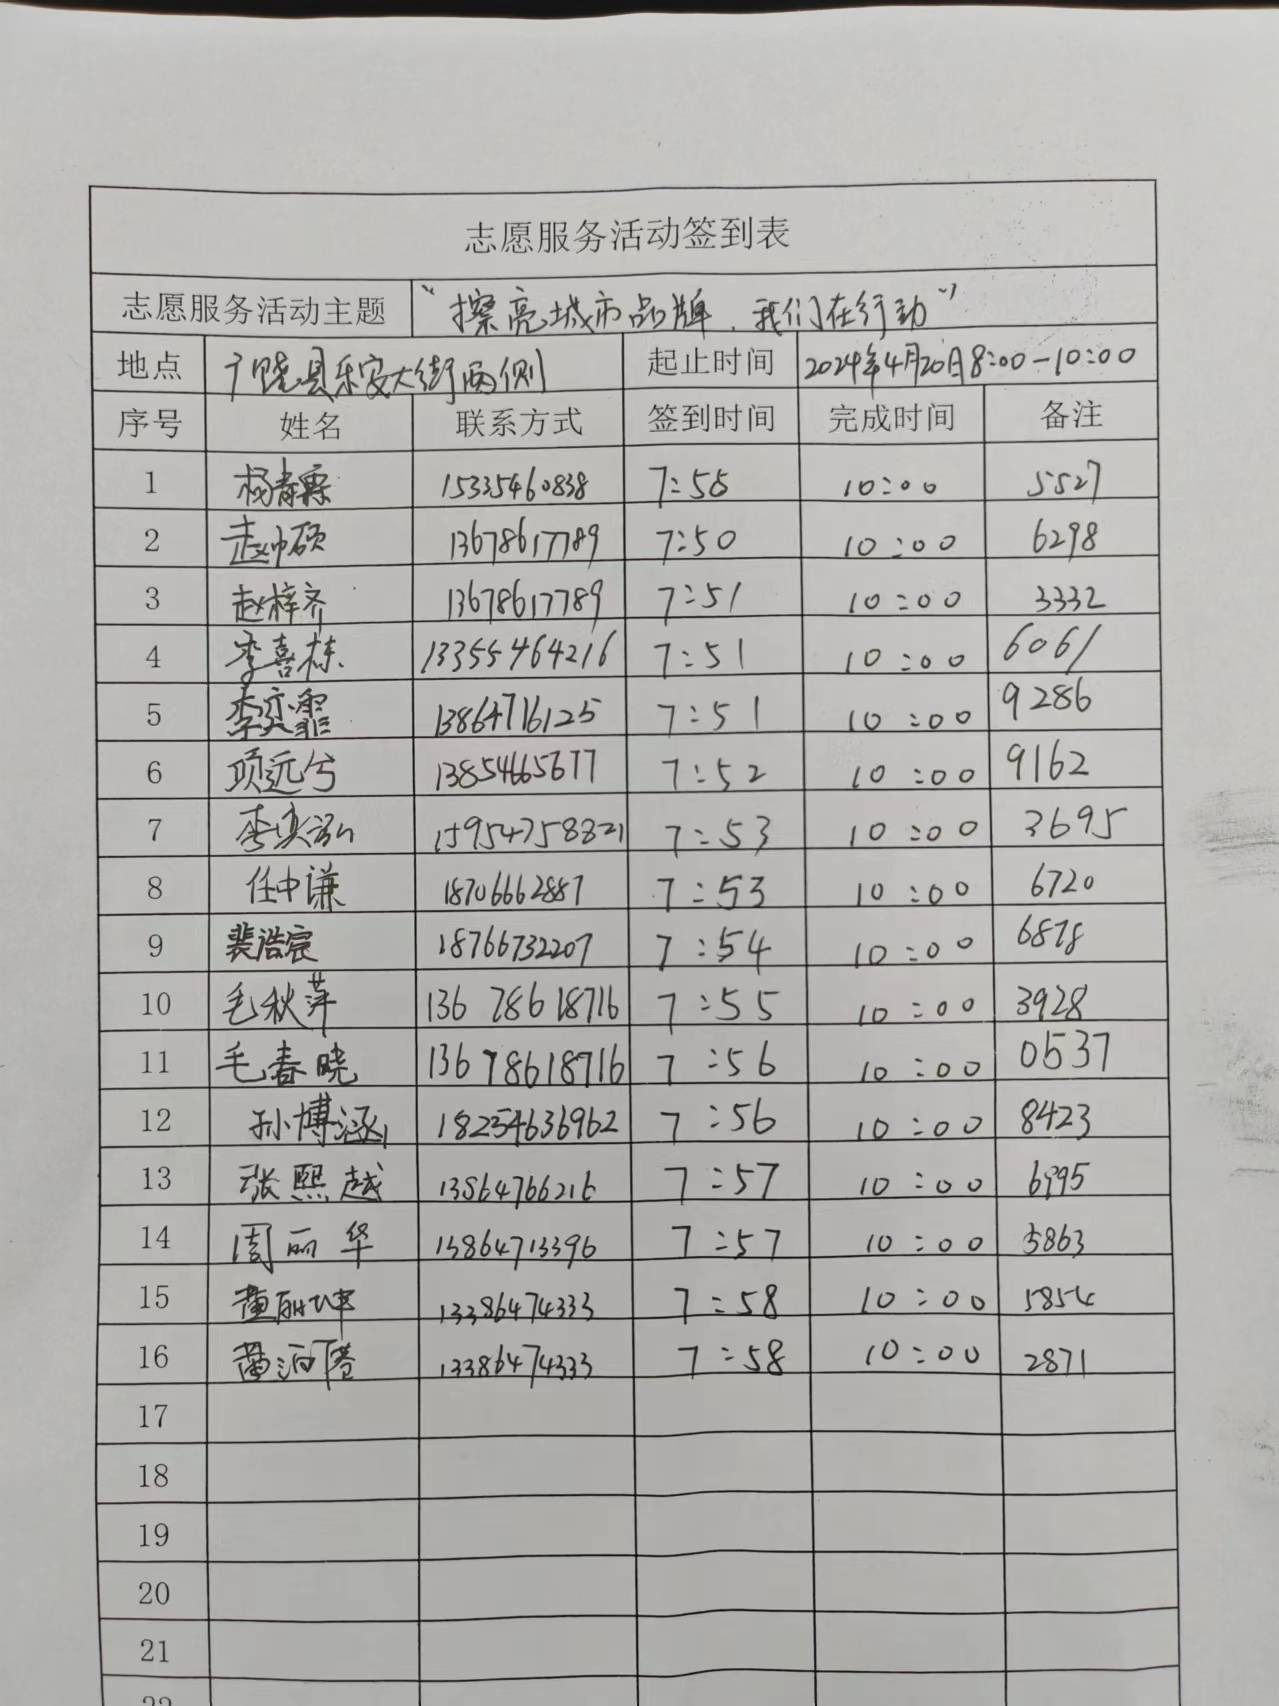 志愿服务活动签到表
志愿服务活动主题 “擦亮城市品牌，我们在行动”
地点 广饶县乐安大街两侧 起止时间 2024年4月20日8:00-10:00
序号 姓名 联系方式 签到时间 完成时间 备注
1 杨青霖 15335460838 7:50 10:00 5527
2 赵帅硕 13678617789 7:50 10:00 6298
3 赵梓齐 13678617789 7:51 10:00 3332
4 李喜栋 13355464216 7:51 10:00 6061
5 李奕霏 13864716125 7:51 10:00 9286
6 项远兮 13854665677 7:52 10:00 9162
7 李奕泓 15954758821 7:53 10:00 3695
8 任中谦 18706662887 7:53 10:00 6720
9 裴浩宸 18766732207 7:54 10:00 6878
10 毛秋萍 13678618716 7:55 10:00 3928
11 毛春晓 13678618716 7:56 10:00 0537
12 孙博涵 18254636962 7:56 10:00 8423
13 张熙越 13864766216 7:57 10:00 6995
14 周丽华 13864713396 7:57 10:00 5863
15 黄丽坤 13386474333 7:58 10:00 5854
16 黄 13386474333 7:58 10:00 2871
17
18
19
20
21
22